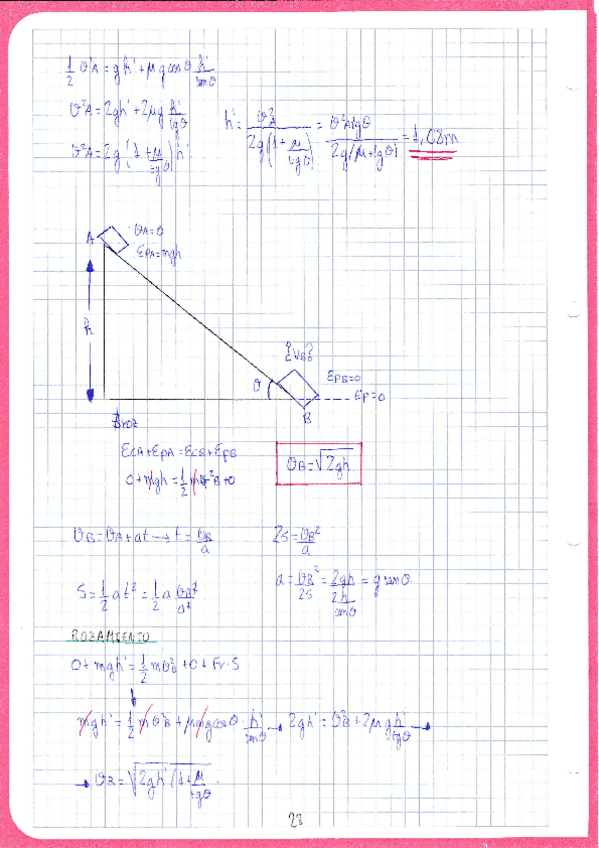 ½ v²A = gh' + μg cosθ h'/senθ
v²A = 2gh' + 2μg h'/tgθ
v²A = 2g (1 + μ/tgθ) h'
h' = v²A / 2g(1 + μ/tgθ) = v²A tgθ / 2g(μ + tgθ) = 1,08m
A
vA = 0
EPA = mgh
h
¿VB?
θ
EPB = 0
EP = 0
B
EcA + EPA = EcB + EPB
0 + mgh = ½ mv²B + 0
vB = √2gh
vB = vA + at → t = vB/a
2s = vB²/a
S = ½ at² = ½ a
a = vB²/2s = 2gh / 2h/senθ = g senθ
ROZAMIENTO
0 + mgh' = ½ mv²B + 0 + Fr·S
mgh' = ½ mv²B + μmg cosθ · h'/senθ → 2gh' = v²B + 2μg h'/tgθ →
→ vB = √2gh' (1 + μ/tgθ
23